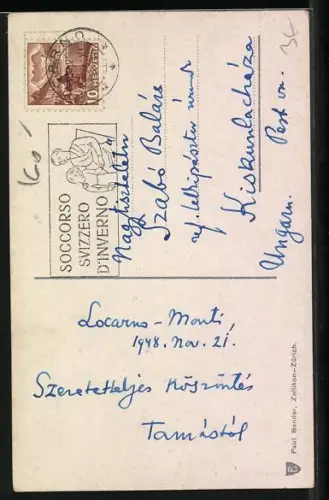 LOCARNO
HELVETIA
10
SOCCORSO
SVIZZERO
D'INVERNO
Nagytiszteletű
Szabó Balázs
ref. lelkipásztor úrnak
Kiskunlacháza
Pest vm.
Ungarn.
Locarno-Monti,
1948. Nov. 21.
Szeretetteljes köszöntés
Tamástól
Paul Bender, Zollikon-Zürich.